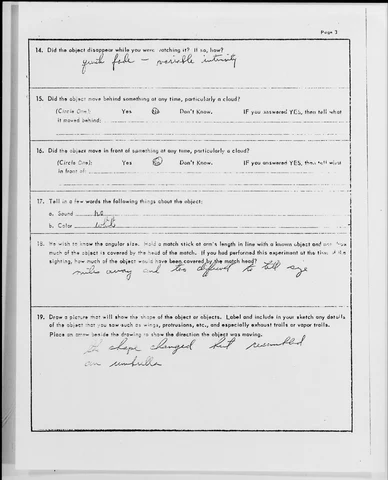 Page 3
14. Did the object disappear while you were watching it? If so, how?
quick fade — variable intensity
15. Did the object move behind something at any time, particularly a cloud?
(Circle One): Yes No Don't Know. IF you answered YES, then tell what
it moved behind:
16. Did the object move in front of something at any time, particularly a cloud?
(Circle One): Yes No Don't Know. IF you answered YES, then tell what
in front of:
17. Tell in a few words the following things about the object:
a. Sound no
b. Color white
18. We wish to know the angular size. Hold a match stick at arm's length in line with a known object and note how
much of the object is covered by the head of the match. If you had performed this experiment at the time of the
sighting, how much of the object would have been covered by the match head?
miles away and too difficult to tell size
19. Draw a picture that will show the shape of the object or objects. Label and include in your sketch any details
of the object that you saw such as wings, protrusions, etc., and especially exhaust trails or vapor trails.
Place an arrow beside the drawing to show the direction the object was moving.
shape changed but resembled
an umbrella